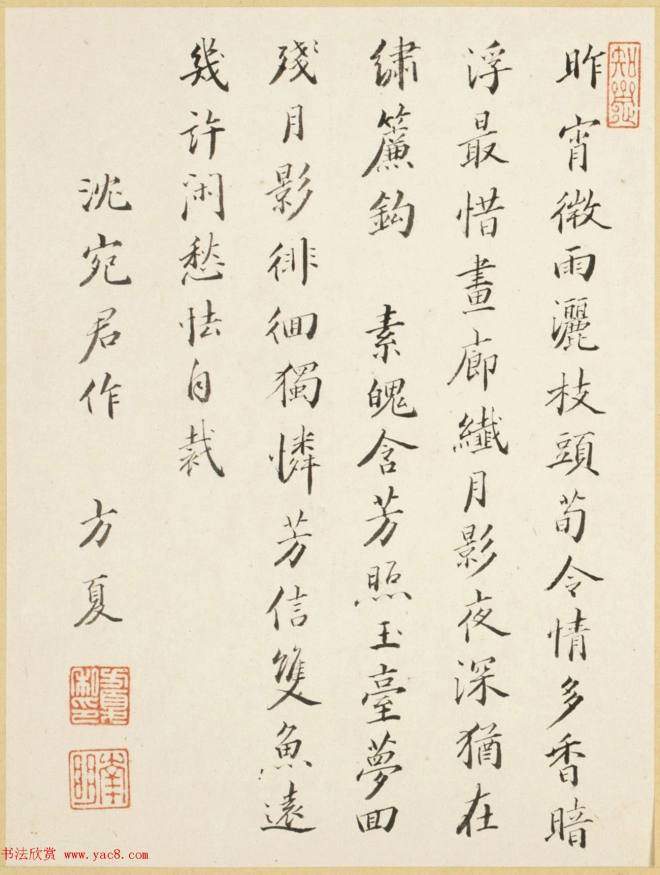 昨宵微雨灑枝頭荀令情多香暗
浮最惜畫廊纖月影夜深猶在
繡簾鈎　素魄含芳照玉臺夢回
殘月影徘徊獨憐芳信雙魚遠
幾許閑愁怯自裁
沈宛君作　方夏
书法欣赏 www.yac8.com